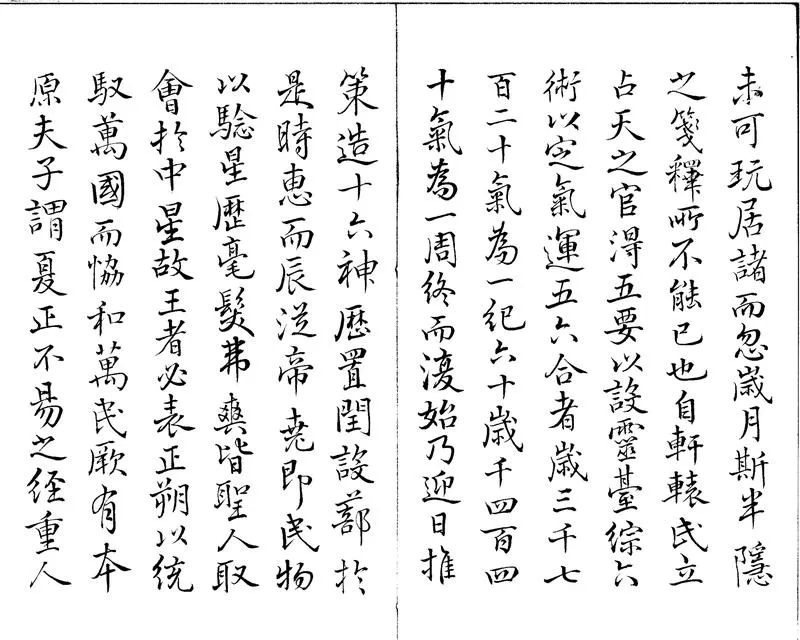 未可玩居諸而忽歲月斯半隱
之箋釋所不能已也自軒轅氏立
占天之官淂五要以設靈臺綜六
術以定氣運五六合者歲三千七
百二十氣為一紀六十歲千四百四
十氣為一周終而復始乃迎日推
策造十六神歷置閏設蔀於
是時惠而辰從帝堯即民物
以驗星歷毫髮弗爽皆聖人取
會於中星故王者必表正朔以統
馭萬國而恊和萬民厥有本
原夫子謂夏正不易之経重人